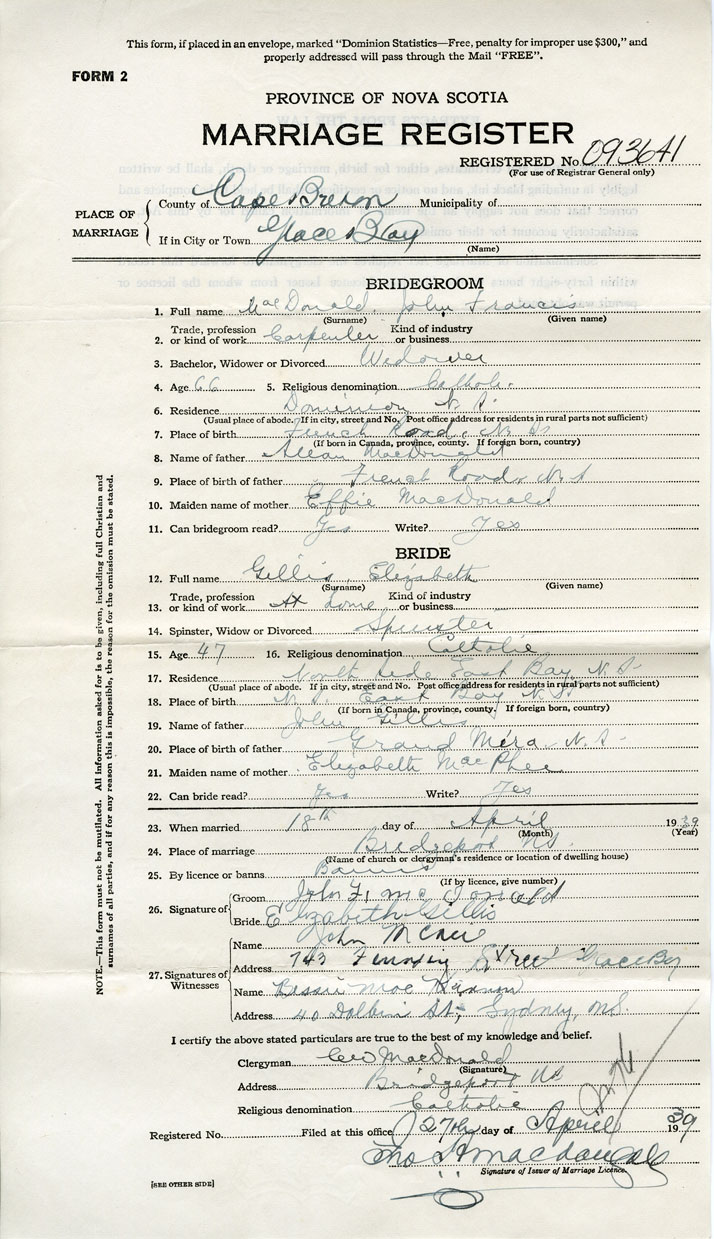 This form, if placed in an envelope, marked "Dominion Statistics—Free, penalty for improper use $300," and
properly addressed will pass through the Mail "FREE".
FORM 2
PROVINCE OF NOVA SCOTIA
MARRIAGE REGISTER
REGISTERED No. 093641
(For use of Registrar General only)
PLACE OF MARRIAGE
County of Cape Breton Municipality of
If in City or Town Glace Bay
(Name)
BRIDEGROOM
1. Full name MacDonald, John Francis
(Surname) (Given name)
2. Trade, profession or kind of work Carpenter Kind of industry or business
3. Bachelor, Widower or Divorced Widower
4. Age 66 5. Religious denomination Catholic
6. Residence Dominion N. S.
(Usual place of abode. If in city, street and No. Post office address for residents in rural parts not sufficient)
7. Place of birth French Road, N. S
(If born in Canada, province, county. If foreign born, country)
8. Name of father Allan MacDonald
9. Place of birth of father French Road, N. S
10. Maiden name of mother Effie MacDonald
11. Can bridegroom read? Yes Write? Yes
BRIDE
12. Full name Gillis, Elizabeth
(Surname) (Given name)
13. Trade, profession or kind of work At home Kind of industry or business
14. Spinster, Widow or Divorced Spinster
15. Age 47 16. Religious denomination Catholic
17. Residence North side East Bay N. S.
(Usual place of abode. If in city, street and No. Post office address for residents in rural parts not sufficient)
18. Place of birth N. S. East Bay N. S
(If born in Canada, province, county. If foreign born, country)
19. Name of father John Gillis
20. Place of birth of father Grand Mira N. S.
21. Maiden name of mother Elizabeth MacPhee
22. Can bride read? Yes Write? Yes
23. When married 18th day of April 1939
(Month) (Year)
24. Place of marriage Bridgeport N.S.
(Name of church or clergyman's residence or location of dwelling house)
25. By licence or banns Banns
(If by licence, give number)
26. Signature of
Groom John F. McDonald
Bride Elizabeth Gillis
27. Signatures of Witnesses
Name John
Address 743 Street Glace Bay
Name Bessie Mac Kinnon
Address 40 St., Sydney, N.S.
I certify the above stated particulars are true to the best of my knowledge and belief.
Clergyman MacDonald
(Signature)
Address Bridgeport NS
Religious denomination Catholic
Registered No. Filed at this office 27th day of April 1939
MacDougall
Signature of Issuer of Marriage Licence.
[SEE OTHER SIDE]
NOTE.—This form must not be mutilated. All information asked for is to be given, including full Christian and
surnames of all parties, and if for any reason this is impossible, the reason for the omission must be stated.